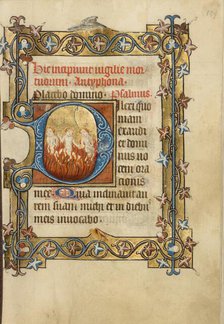 Hic incipiunt vigilie mor
tuorum. Antyphona
Placebo domino. Psalmus
Dilexi quo
niam
exaudi
et domi
nus vo
cem or
ationis
mee. Quia inclinavit au
rem suam michi et in diebus
meis invocabo.